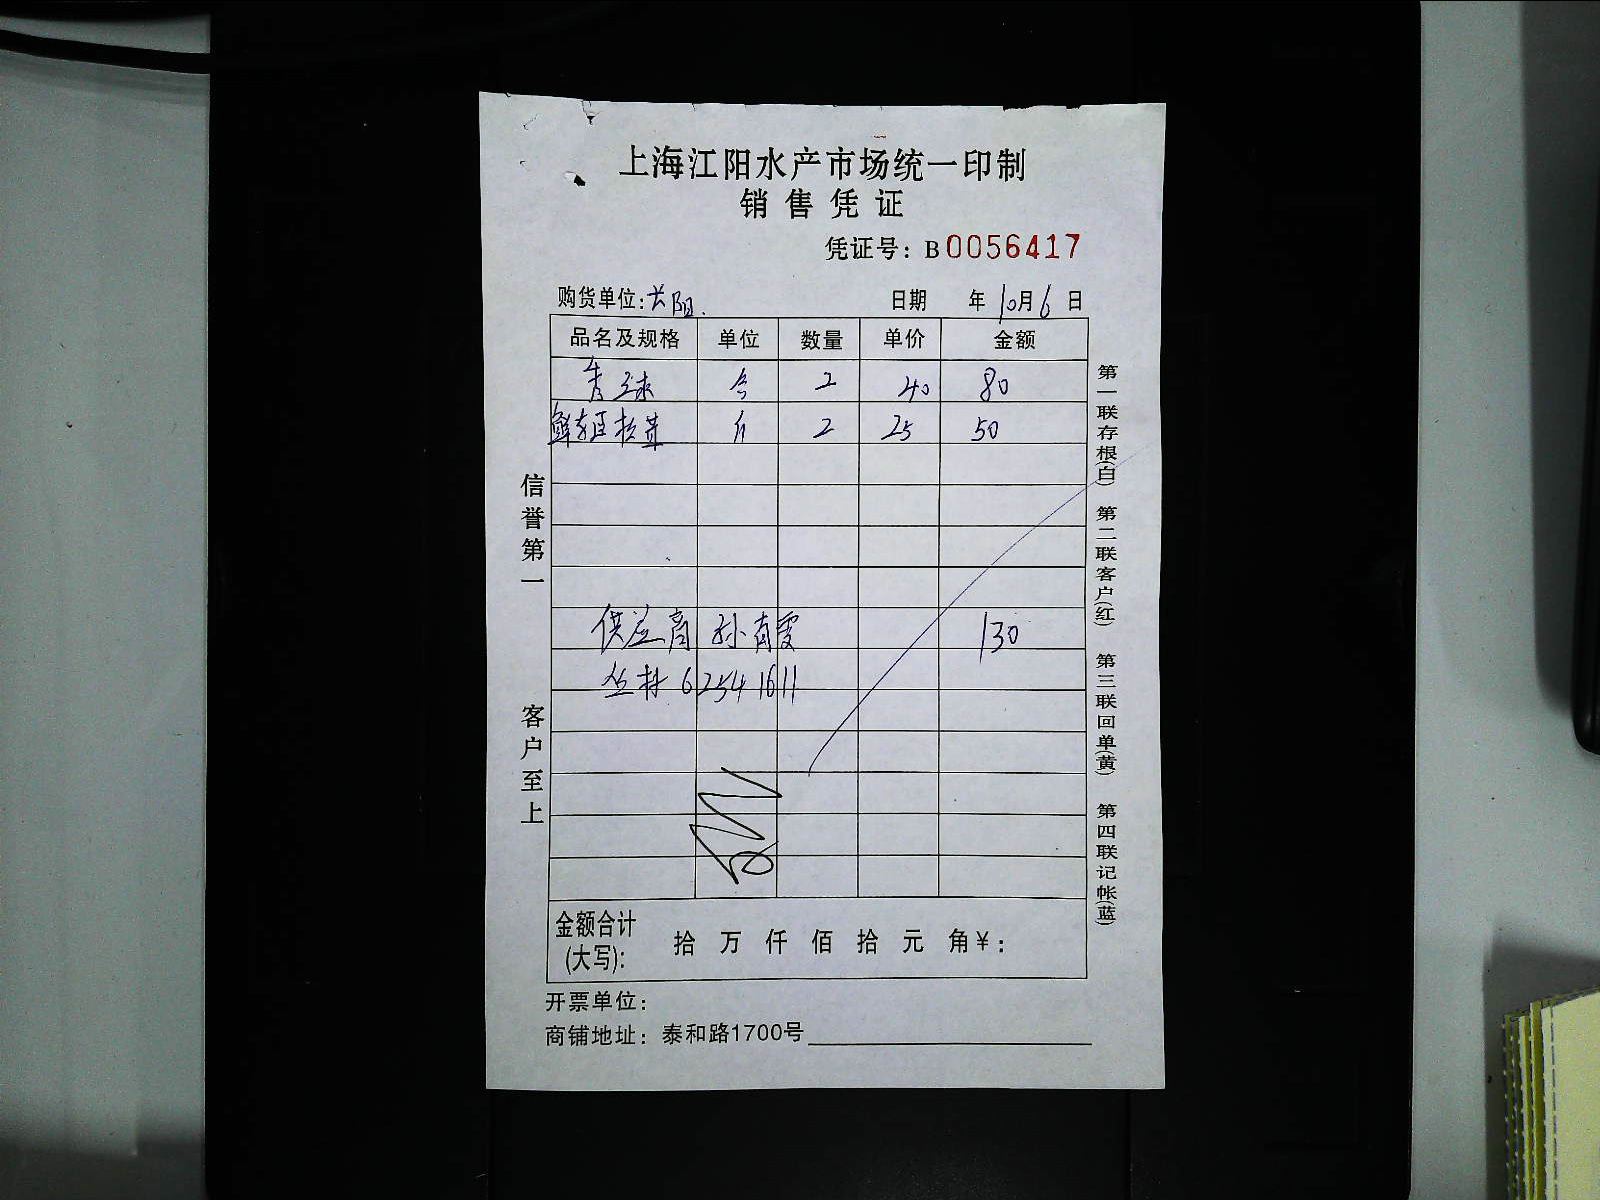 上海江阳水产市场统一印制
销售凭证
凭证号：B0056417
购货单位：长阳.
日期 年10月6日
品名及规格 单位 数量 单价 金额
2 40 80
斤 2 25 50
供应商 孙 130
丛林 62541611
金额合计
(大写)： 拾 万 仟 佰 拾 元 角￥：
开票单位：
商铺地址：泰和路1700号
信誉第一
客户至上
第一联存根(白) 第二联客户(红) 第三联回单(黄) 第四联记帐(蓝)